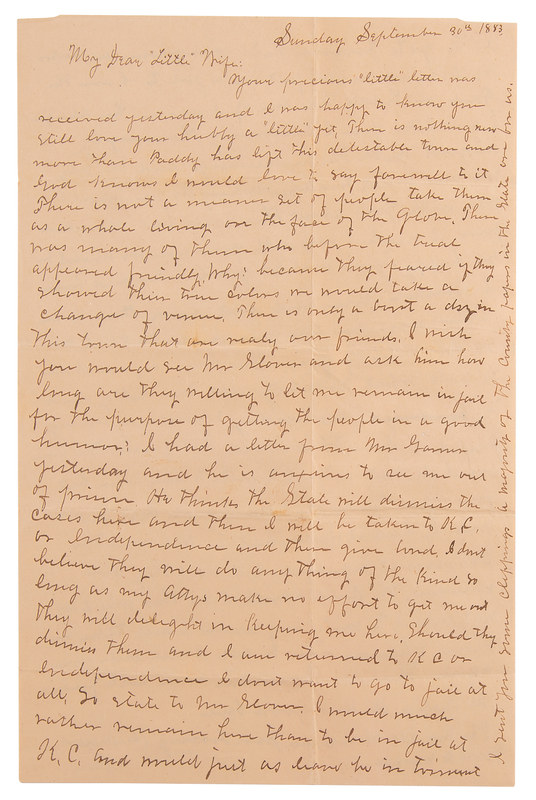 Sunday September 30th 1883
My Dear "Little" Wife:
Your precious "little" letter was
received yesterday and I was happy to know you
still love your hubby a "little" yet. There is nothing new
more than Paddy has left this delectable town and
God knows I would love to say farewell to it
There is not a meaner set of people take them
as a whole living on the face of the Globe. There
was many of them who before the trial
appeared friendly, Why? because they feared if they
showed their true colors we would take a
change of venue. There is only a bout a dozin
this town that are realy our friends. I wish
you would see Mr Glover and ask him how
long are they willing to let me remain in jail
for the purpose of getting the people in a good
humor? I had a letter from Mr
yesterday and he is anxious to see me out
of prison He thinks the State will dismiss the
cases here and then I will be taken to K.C.
or Independence and then give bond, I dont
believe they will do any thing of the kind so
long as my Attys make no effort to get me out
they will delight in keeping me here, Should they
dismiss them and I am returned to K C or
Independence I dont want to go to jail at
all, So state to Mr Glover. I would much
rather remain here than to be in jail at
K, C, and would just as leave be in torment
I sent you some Clippings a majority of the County papers in the State are on us.